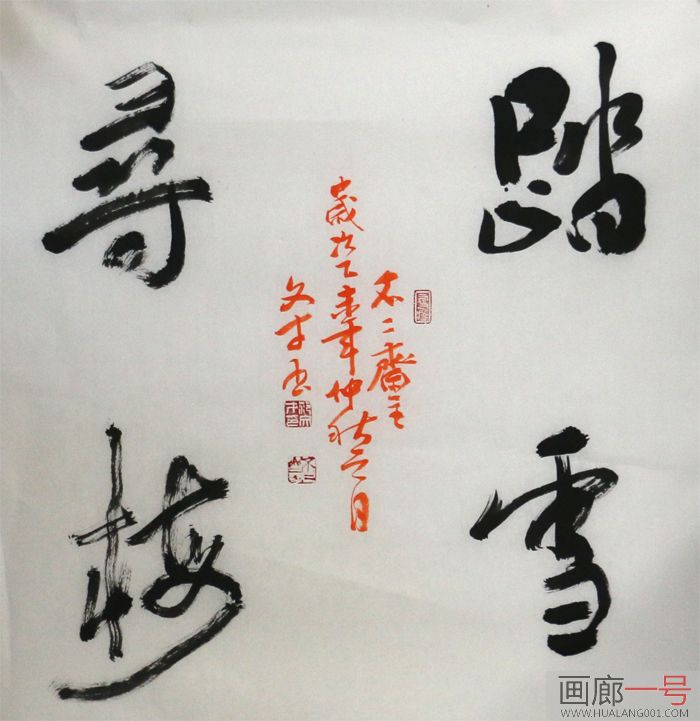 踏雪
尋梅
不二齋主
歲次乙未年仲秋之月
文才书
画廊一号
WWW.HUALANG001.COM